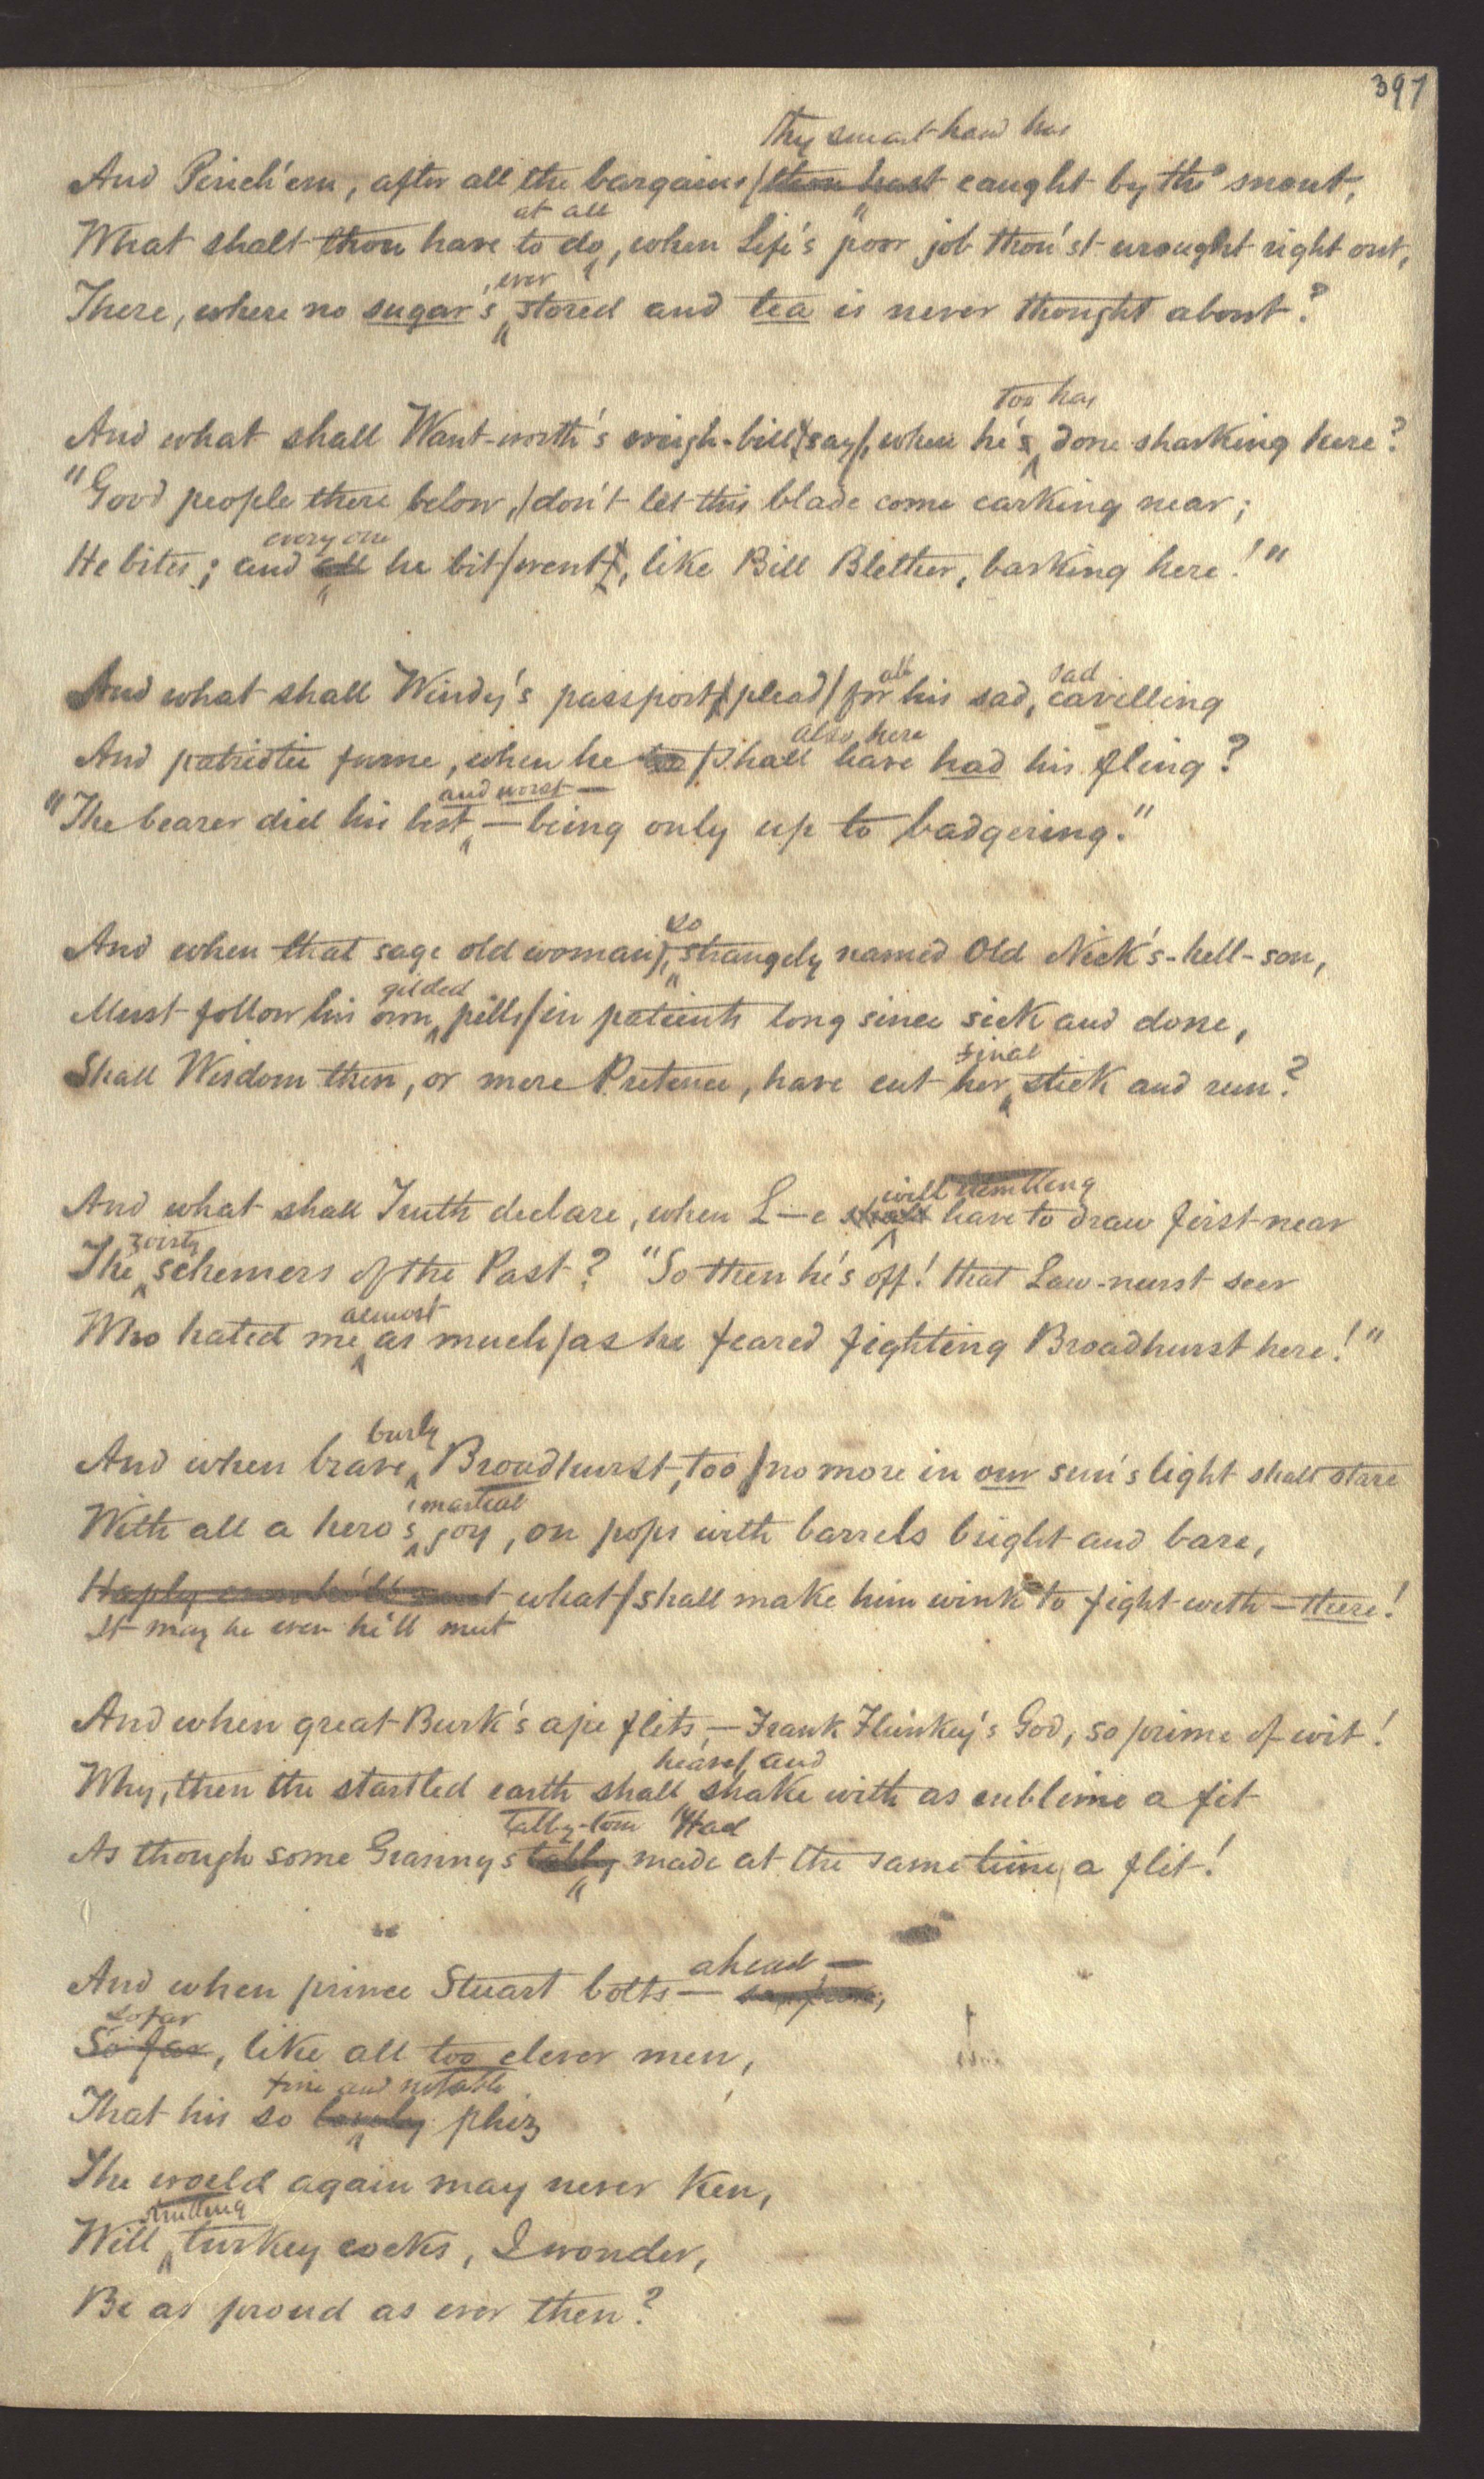 397
thy smart haw has
And Pinch'em, after all the bargains / thou hast caught by the snout,
at all
What shalt thou have to do, when Life's poor job thou'st wrought right out,
ever
There, where no sugar's stored and tea is never thought about?
too has
And what shall Want-worth's weigh-bill say, when he's done sharking here?
"Good people there below, / don't let this blade come carking near;
every one
He bites; and all he bit / went, like Bill Blether, barking here!"
all sad
And what shall Windy's passport plead / for his sad, cavilling
also here
And patriotic fume, when he shall have had his fling?
and worst —
"The bearer did his best, — being only up to badgering."
so
And when that sage old woman, strangely named Old Nick's-hell-son,
gilded
Must follow his own pills / in patients long since sick and done,
final
Shall Wisdom then, or mere Pretence, have cut her stick and run?
will trembling
And what shall Truth declare, when L—e shall have to draw first near
The schemers of the Past? "So then he's off! that Law-nurst seer
almost
Who hated me as much / as he feared fighting Broadhurst here!"
burly
And when brave Broadhurst, too / no more in our sun's light shall stare
martial
With all a hero's joy, on pops with barrels bright and bare,
Haply even he'll meet what / shall make him wink to fight with — there!
It may be even he'll meet
And when great Burk's ape flits, — Frank Flunkey's God, so prime of wit!
heave / and
Why, then the startled earth shall shake with as sublime a fit
Tabby-tom Had
As though some Granny's tabby made at the same time a flit!
ahead —
And when prince Stuart bolts —
So far
So far, like all too clever men,
fine and notable
That his so lovely phiz
The world again may never ken,
strutting
Will turkey cocks, I wonder,
Be as proud as ever then?